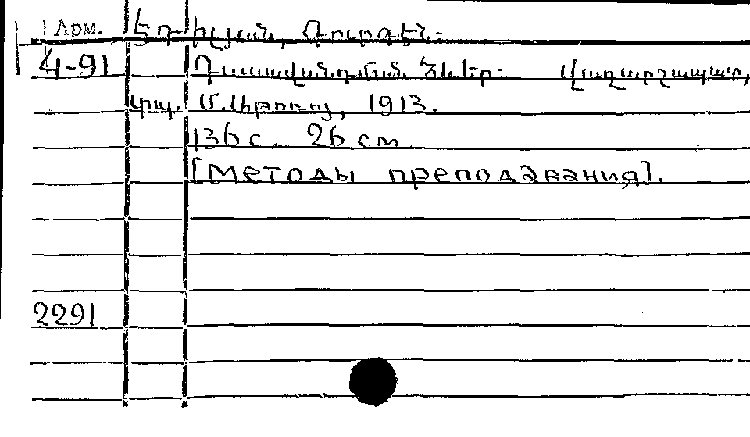 Арм. Եդիլյան, Գուրգէն.
4-91 Դասավանդման ձևեր. Վաղարշապատ,
տպ. Ս. Էջմիածնի, 1913.
136 с. 26 см
[Методы преподавания].
2291